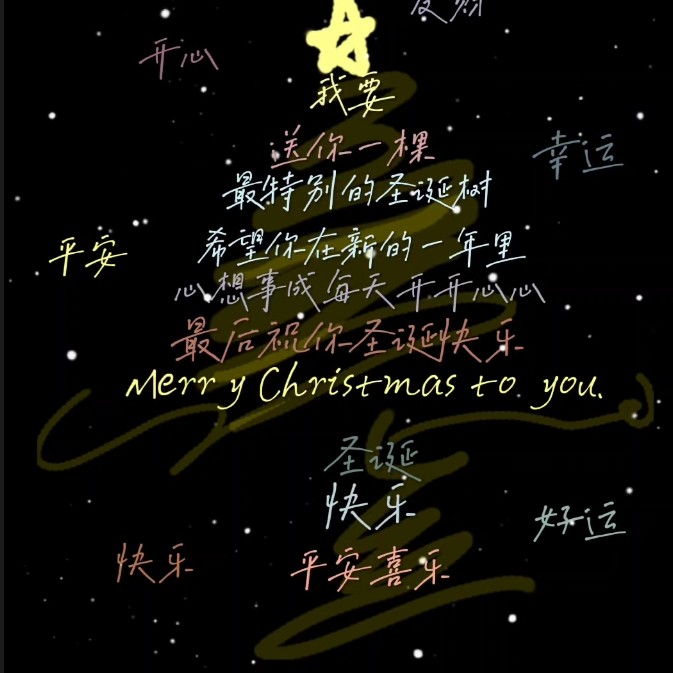 发财
开心
我要
送你一棵
幸运
最特别的圣诞树
平安
希望你在新的一年里
心想事成每天开开心心
最后祝你圣诞快乐
Merry Christmas to you.
圣诞
快乐
好运
快乐
平安喜乐